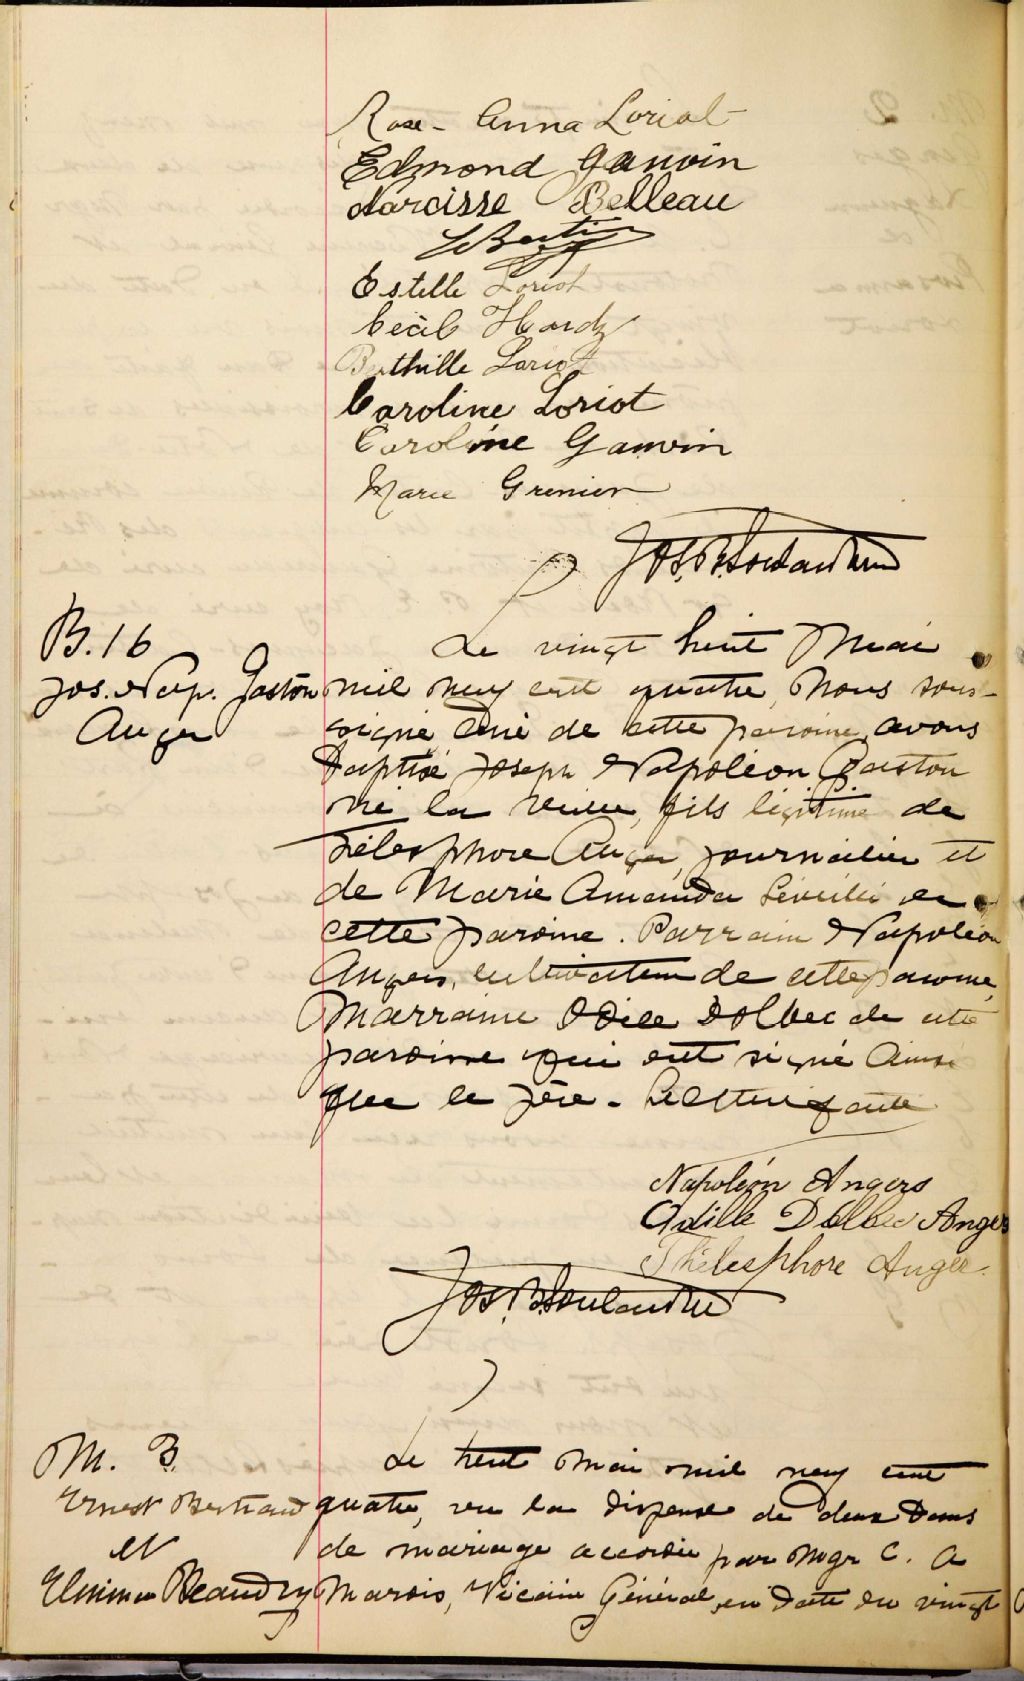 Rose-Anna Loriot
Edmond Gauvin
Narcisse Belleau
Estelle Loriot
Cécile Hardy
Berthille Loriot
Caroline Loriot
Caroline Gauvin
Marie Grenier
B. 16
Jos. Nap. Gaston
Anger
Le vingt huit Mai
mil neuf cent quatre, Nous sous-
signé Curé de cette paroisse, avons
Baptisé Joseph Napoléon Gaston
né la veille, fils légitime de
Télesphore Anger, journalier et
de Marie Amanda de
cette paroisse. Parrain Napoléon
Angers, cultivateur de cette paroisse,
Marraine Odile Dolbec de cette
paroisse qui ont signé ainsi
que le père. Lecture faite
Napoléon Angers
Odille Dolbec Angers
Thélesphore Anger.
M. 3.
Ernest Bertrand
et
Beaudry
Le trente Mai mil neuf cent
quatre, vu la dispense de deux bans
de mariage accordée par Mgr C. A
Marois, Vicaire Général, en date du vingt